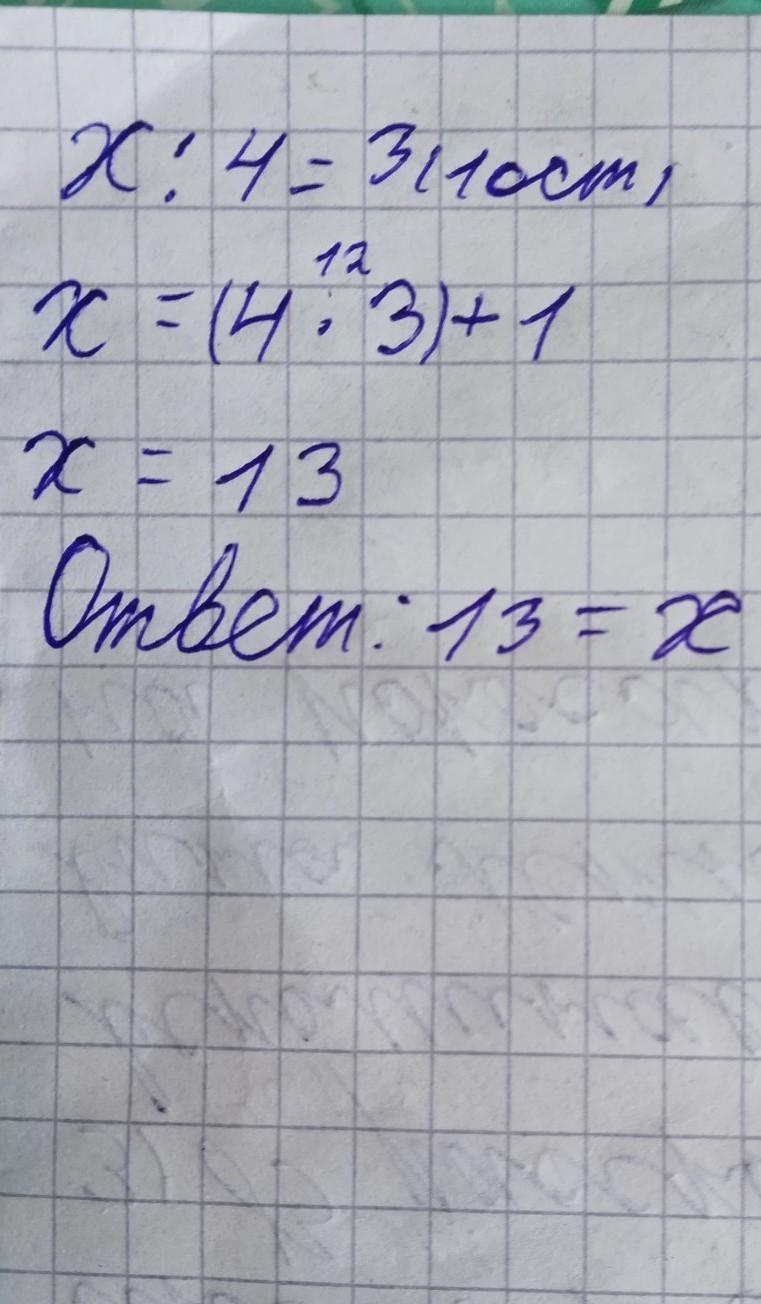 x : 4 = 3(1 ост)
12
x = (4 · 3) + 1
x = 13
Ответ: 13 = x